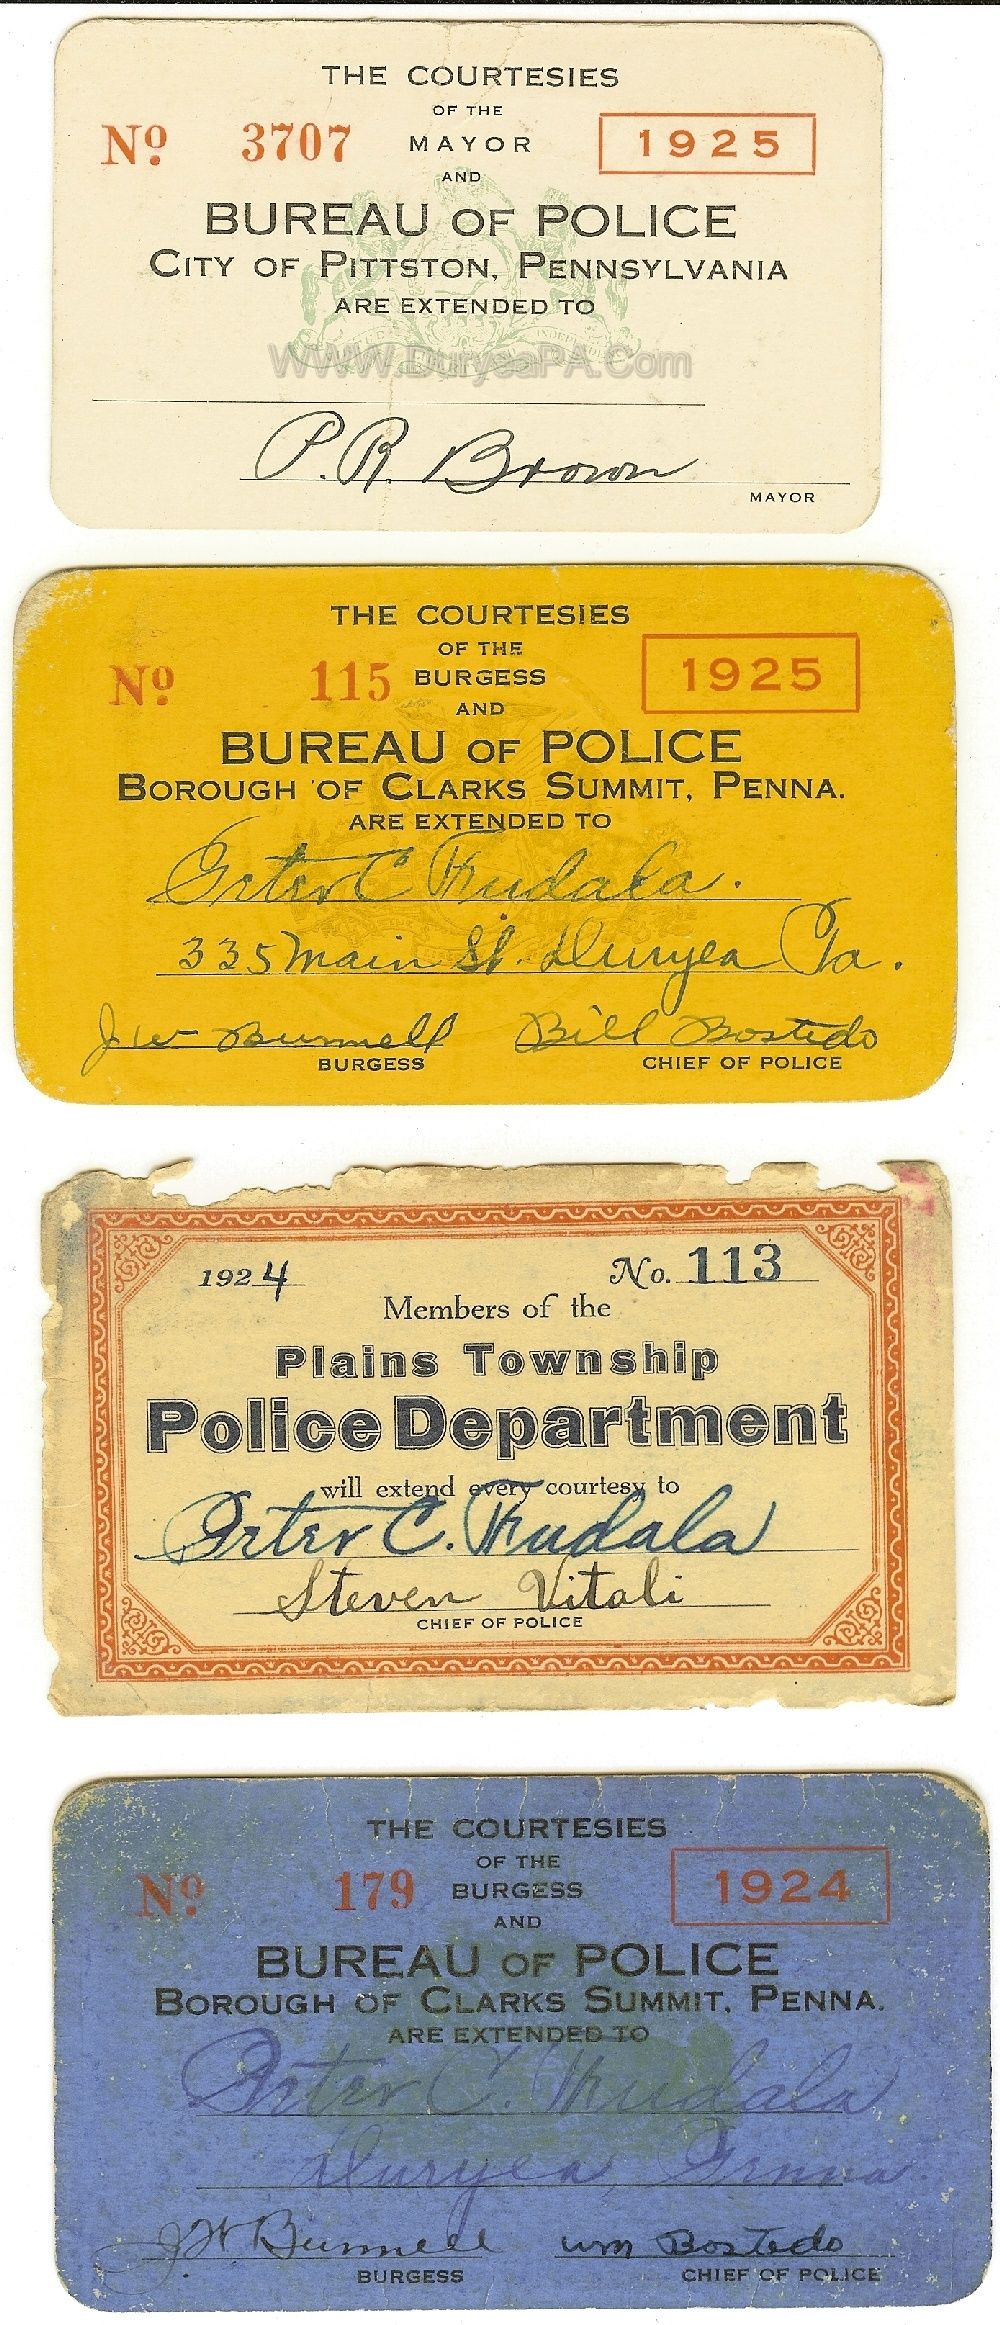 THE COURTESIES
OF THE
No. 3707 MAYOR 1925
AND
BUREAU OF POLICE
CITY OF PITTSTON, PENNSYLVANIA
ARE EXTENDED TO
WWW.DuryeaPA.Com
P. R. Brown
MAYOR
THE COURTESIES
OF THE
No. 115 BURGESS 1925
AND
BUREAU OF POLICE
BOROUGH OF CLARKS SUMMIT, PENNA.
ARE EXTENDED TO
Peter C Kudala.
335 Main St. Duryea Pa.
J W Bunnell Bill Bostedo
BURGESS CHIEF OF POLICE
1924 No. 113
Members of the
Plains Township
Police Department
will extend every courtesy to
Peter C. Kudala
Steven Vitali
CHIEF OF POLICE
THE COURTESIES
OF THE
No. 179 BURGESS 1924
AND
BUREAU OF POLICE
BOROUGH OF CLARKS SUMMIT, PENNA.
ARE EXTENDED TO
Peter C. Kudala
Duryea, Penna.
J W Bunnell Wm Bostedo
BURGESS CHIEF OF POLICE